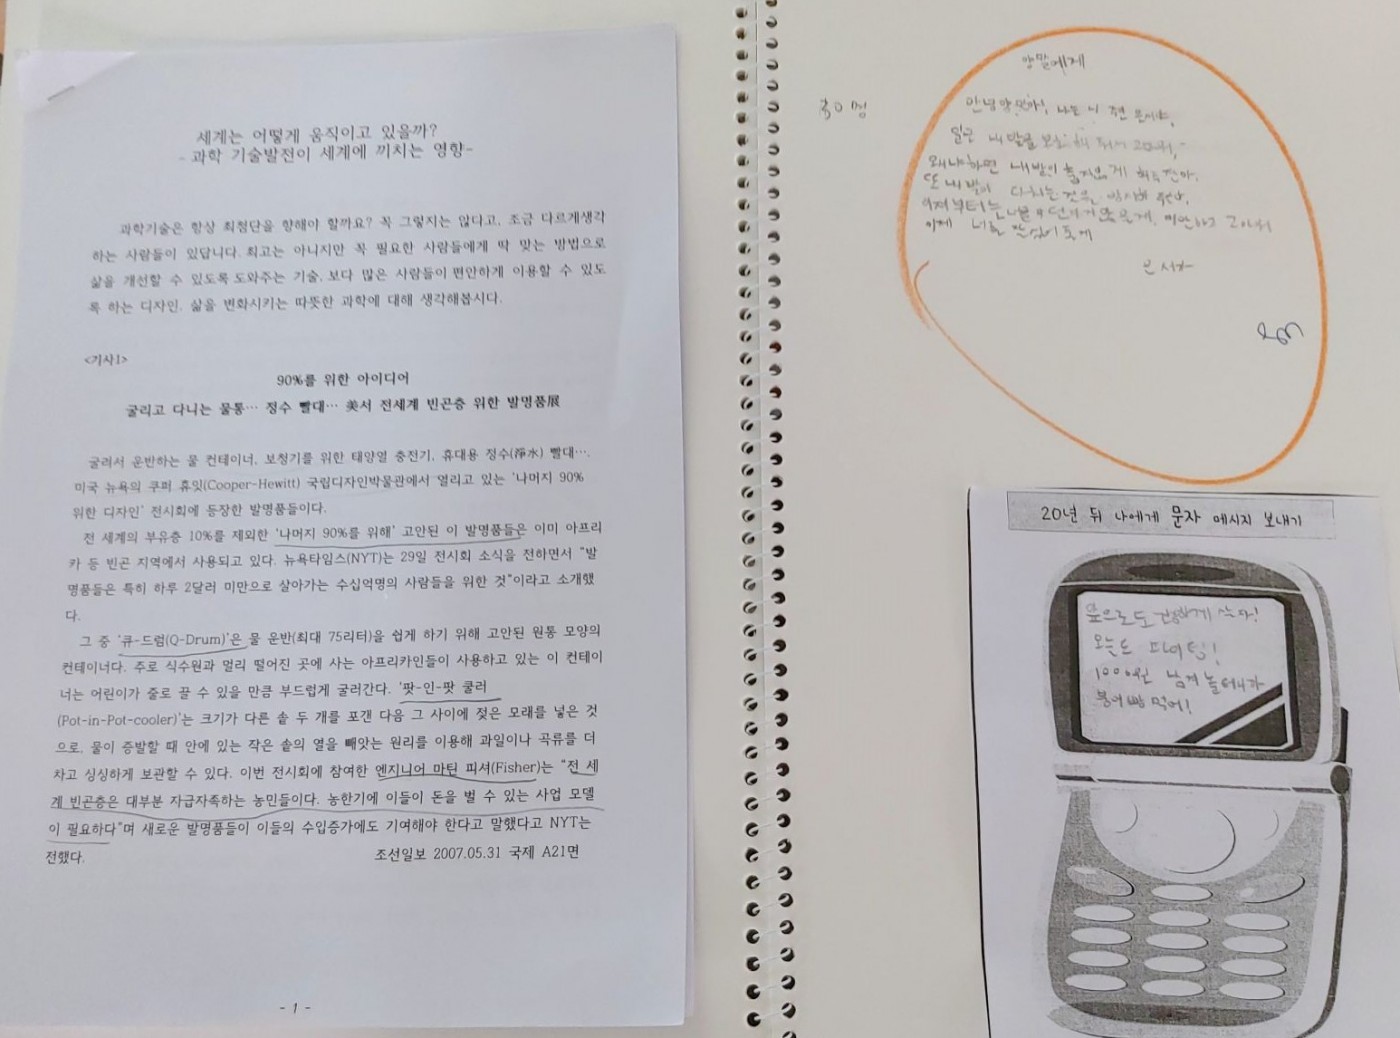 세계는 어떻게 움직이고 있을까?
- 과학 기술발전이 세계에 끼치는 영향-
과학기술은 항상 최첨단을 향해야 할까요? 꼭 그렇지는 않다고, 조금 다르게생각
하는 사람들이 있답니다. 최고는 아니지만 꼭 필요한 사람들에게 딱 맞는 방법으로
삶을 개선할 수 있도록 도와주는 기술, 보다 많은 사람들이 편안하게 이용할 수 있도
록 하는 디자인. 삶을 변화시키는 따뜻한 과학에 대해 생각해봅시다.
<기사1>
90%를 위한 아이디어
굴리고 다니는 물통… 정수 빨대… 美서 전세계 빈곤층 위한 발명품展
굴려서 운반하는 물 컨테이너, 보청기를 위한 태양열 충전기, 휴대용 정수(淨水) 빨대….
미국 뉴욕의 쿠퍼 휴잇(Cooper-Hewitt) 국립디자인박물관에서 열리고 있는 '나머지 90%
위한 디자인' 전시회에 등장한 발명품들이다.
전 세계의 부유층 10%를 제외한 '나머지 90%를 위해' 고안된 이 발명품들은 이미 아프리
카 등 빈곤 지역에서 사용되고 있다. 뉴욕타임스(NYT)는 29일 전시회 소식을 전하면서 "발
명품들은 특히 하루 2달러 미만으로 살아가는 수십억명의 사람들을 위한 것"이라고 소개했
다.
그 중 '큐-드럼(Q-Drum)'은 물 운반(최대 75리터)을 쉽게 하기 위해 고안된 원통 모양의
컨테이너다. 주로 식수원과 멀리 떨어진 곳에 사는 아프리카인들이 사용하고 있는 이 컨테이
너는 어린이가 줄로 끌 수 있을 만큼 부드럽게 굴러간다. '팟-인-팟 쿨러
(Pot-in-Pot-cooler)'는 크기가 다른 솥 두 개를 포갠 다음 그 사이에 젖은 모래를 넣은 것
으로, 물이 증발할 때 안에 있는 작은 솥의 열을 빼앗는 원리를 이용해 과일이나 곡류를 더
차고 싱싱하게 보관할 수 있다. 이번 전시회에 참여한 엔지니어 마틴 피셔(Fisher)는 "전 세
계 빈곤층은 대부분 자급자족하는 농민들이다. 농한기에 이들이 돈을 벌 수 있는 사업 모델
이 필요하다"며 새로운 발명품들이 이들의 수입증가에도 기여해야 한다고 말했다고 NYT는
전했다.
조선일보 2007.05.31 국제 A21면
- 1 -
양말에게
안녕 나는 니
내 발을
왜냐하면 내 발이 게
또 내 발이 다치는 것을
미안하고 고마워
이제 너를
20년 뒤 나에게 문자 메시지 보내기
앞으로도 건강하게 살다!
오늘도 파이팅!
1000원 남겨 놀테니까
붕어빵 먹어!